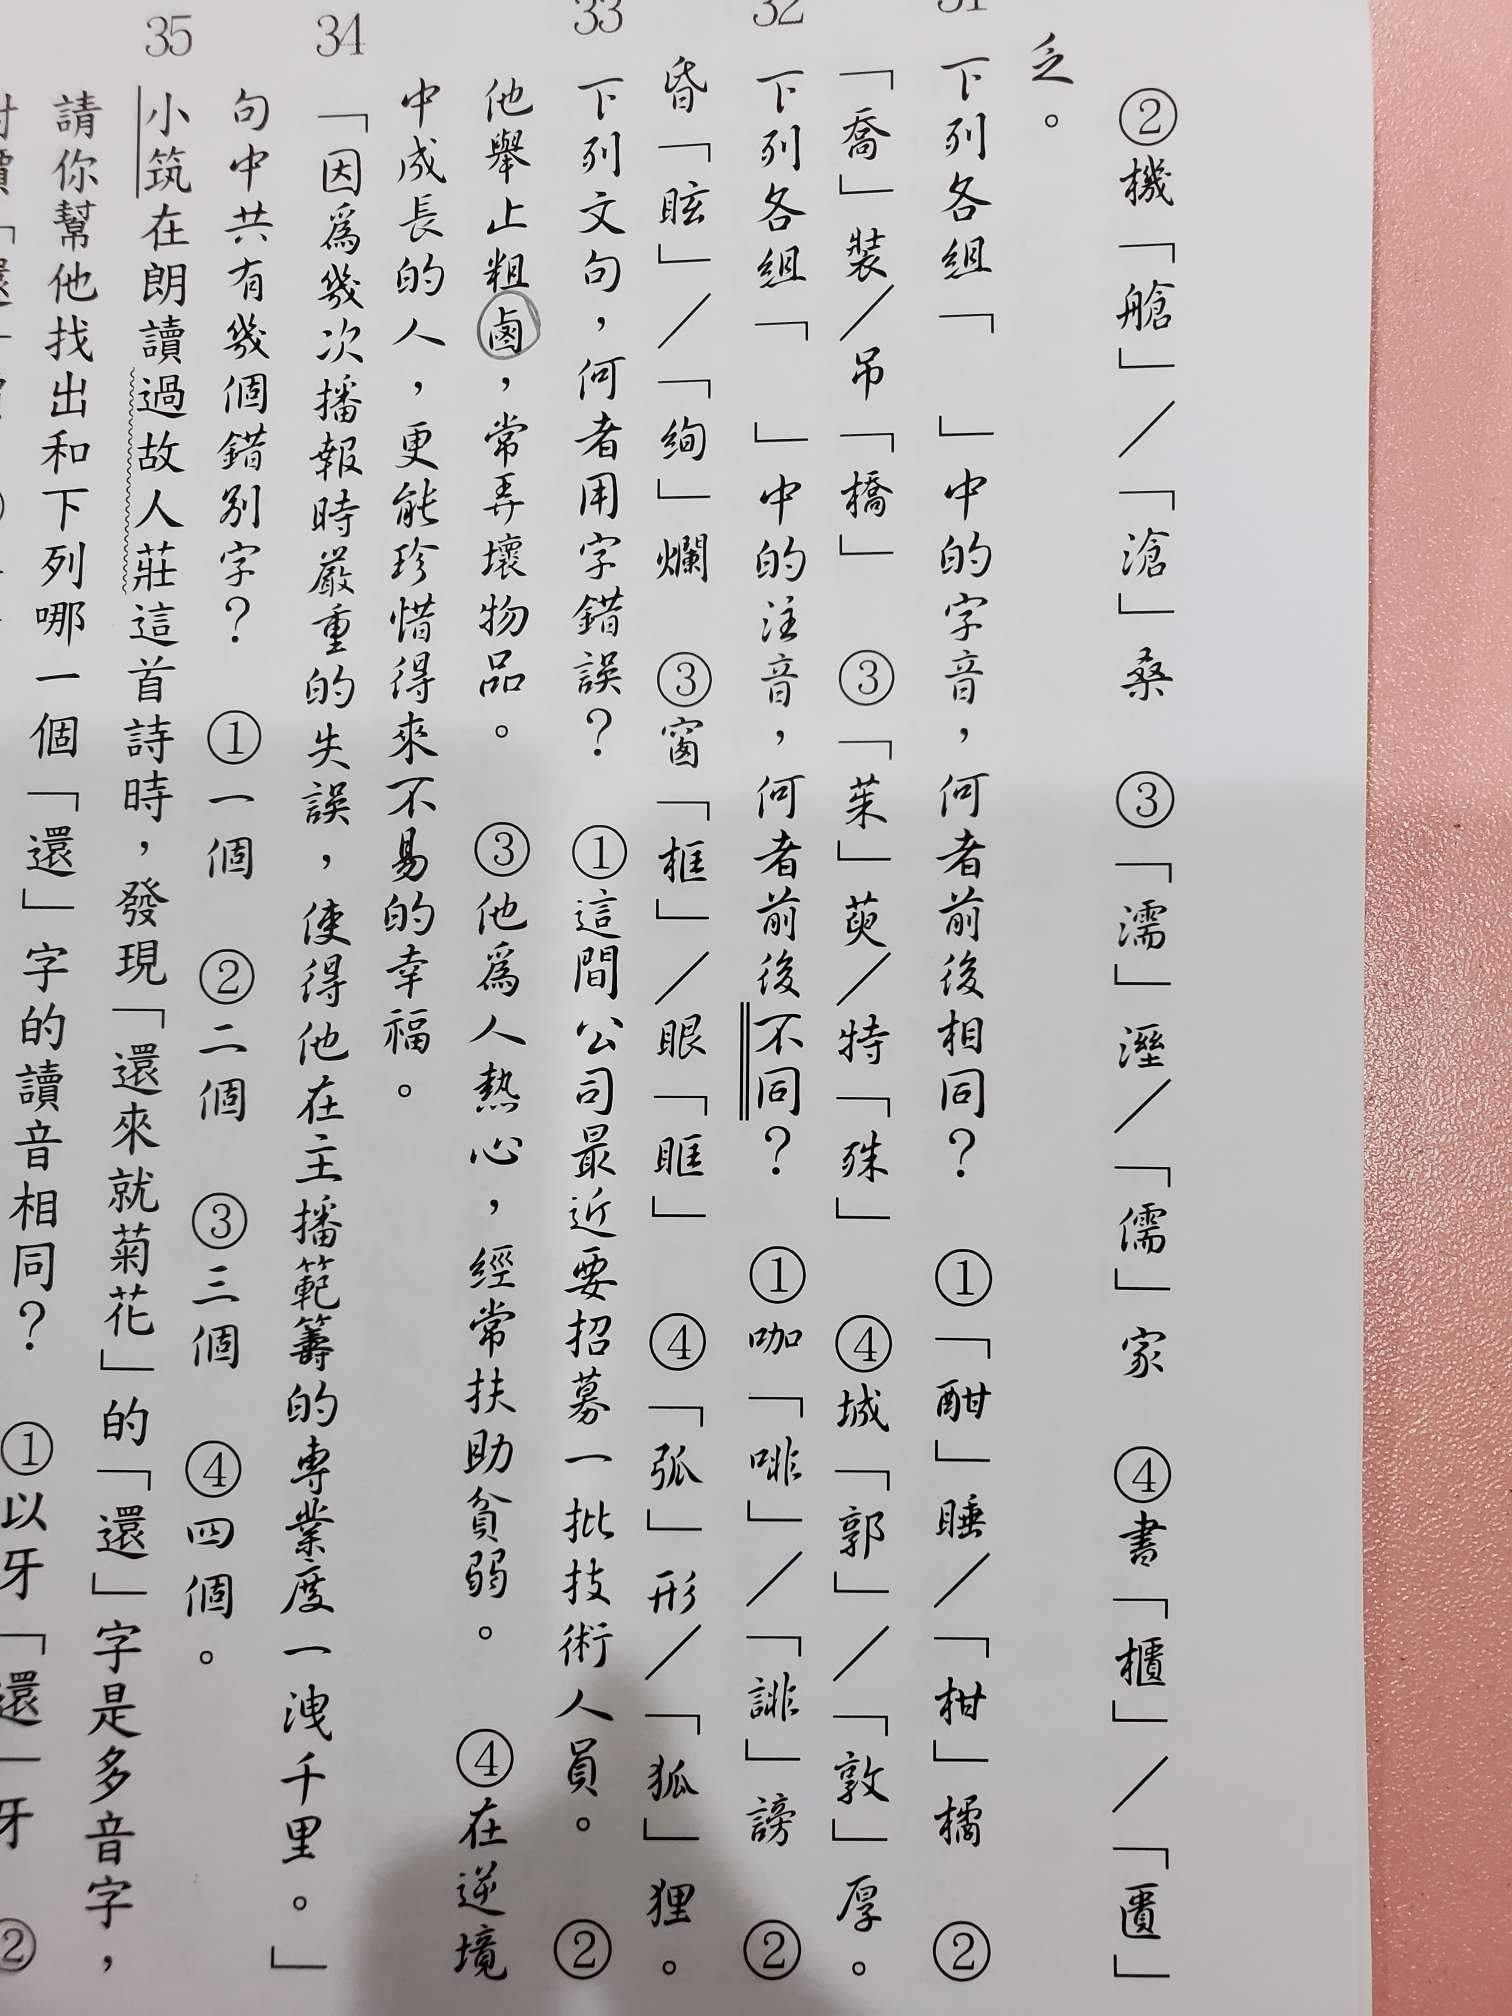 ②機「艙」／「滄」桑 ③「濡」溼／「儒」家 ④書「櫃」／「匱」
乏。
31 下列各組「 」中的字音，何者前後相同？ ①「酣」睡／「柑」橘 ②
「喬」裝／吊「橋」 ③「茱」萸／特「殊」 ④城「郭」／「敦」厚。
32 下列各組「 」中的注音，何者前後不同？ ①咖「啡」／「誹」謗 ②
昏「眩」／「絢」爛 ③窗「框」／眼「眶」 ④「弧」形／「狐」狸。
33 下列文句，何者用字錯誤？ ①這間公司最近要招募一批技術人員。 ②
他舉止粗鹵，常弄壞物品。 ③他為人熱心，經常扶助貧弱。 ④在逆境
中成長的人，更能珍惜得來不易的幸福。
34 「因為幾次播報時嚴重的失誤，使得他在主播範籌的專業度一洩千里。」
句中共有幾個錯別字？ ①一個 ②二個 ③三個 ④四個。
35 小筑在朗讀過故人莊這首詩時，發現「還來就菊花」的「還」字是多音字，
請你幫他找出和下列哪一個「還」字的讀音相同？ ①以牙「還」牙 ②